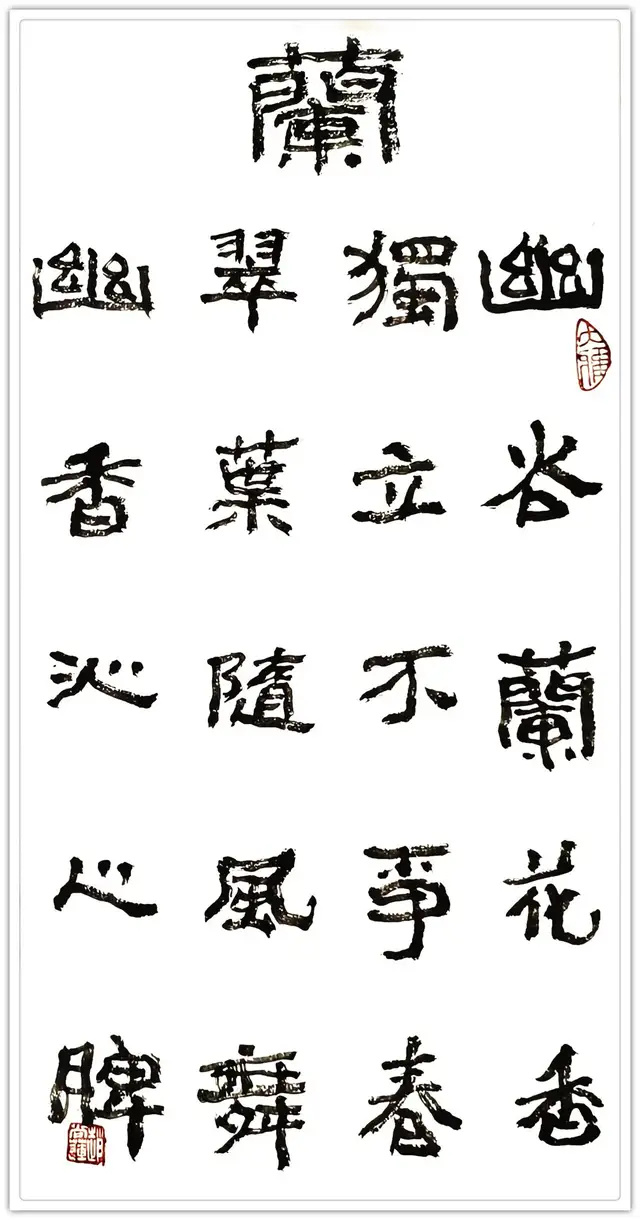 蘭
幽谷蘭花香
獨立不爭春
翠葉隨風舞
幽香沁心脾